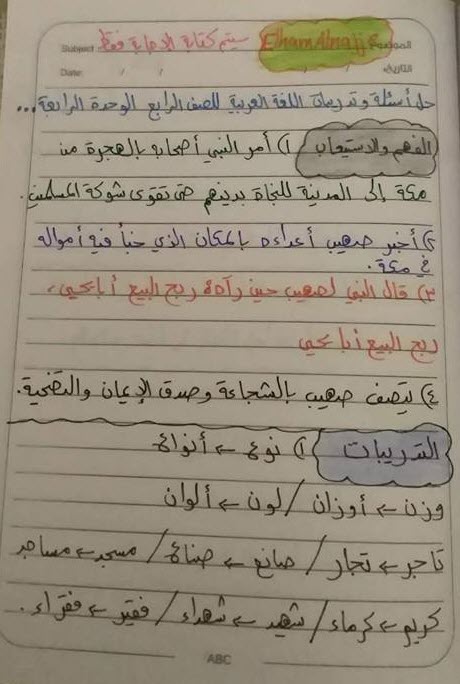 الموضوع Elham Alnajj سيتم كتابة الإجابة فقط Subject
التاريخ / / Date: / /
حل أسئلة وتدريبات اللغة العربية للصف الرابع الوحدة الرابعة...
الفهم والاستيعاب ١) أمر النبي أصحابه بالهجرة من
مكة إلى المدينة للنجاة بدينهم حتى تقوى شوكة المسلمين.
٢) أخبر صهيب أعداءه بالمكان الذي خبأ فيه أمواله
في مكة.
٣) قال النبي لصهيب حين رآه: ربح البيع أبا يحيى،
ربح البيع أبا يحيى
٤) يتصف صهيب بالشجاعة وصدق الإيمان والتضحية.
التدريبات ١) نوع ← أنواع
وزن ← أوزان / لون ← ألوان
تاجر ← تجار / صانع ← صناع / مسجد ← مساجد
كريم ← كرماء / شهيد ← شهداء / فقير ← فقراء.
ABC